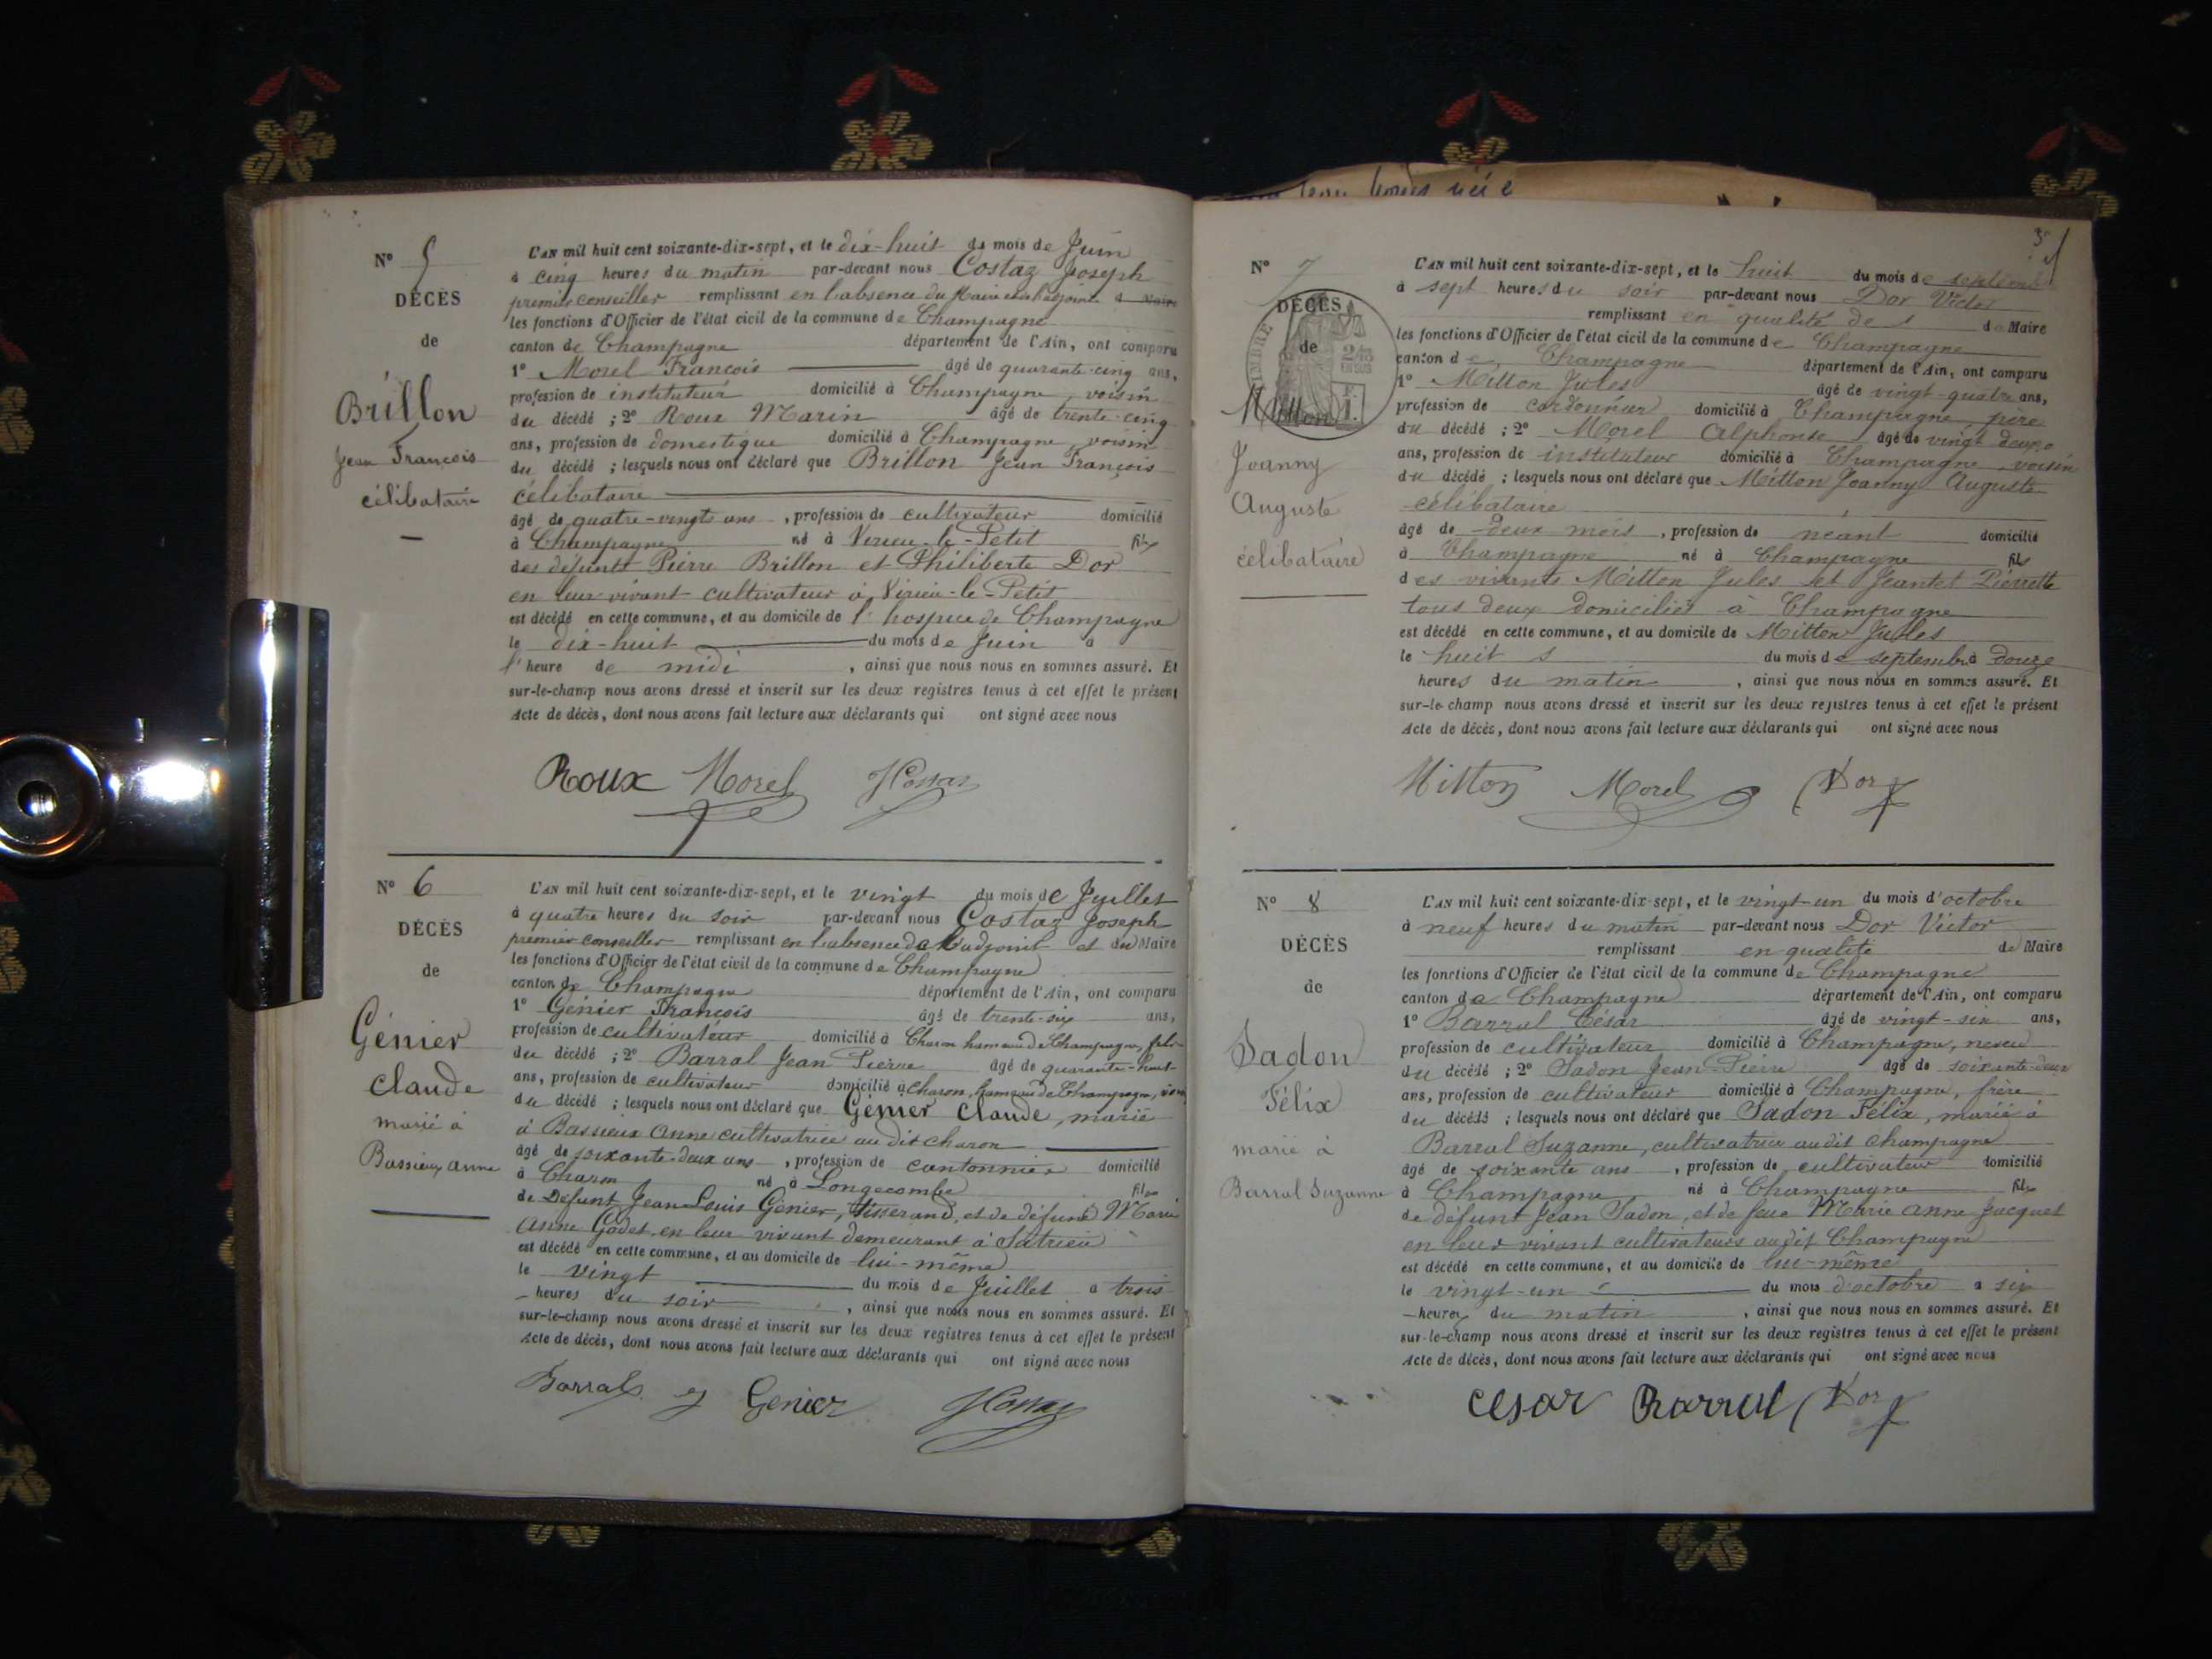 Nº 5
DÉCÈS
de
Brillon
Jean François
célibataire
L'AN mil huit cent soixante-dix-sept, et le dix-huit du mois de Juin
à cinq heures du matin par-devant nous Costaz Joseph
premier conseiller remplissant en l'absence du Maire et de l'adjoint
les fonctions d'Officier de l'état civil de la commune de Champagne
canton de Champagne département de l'Ain, ont comparu
1º Morel François âgé de quarante-cinq ans,
profession de instituteur domicilié à Champagne, voisin
du décédé ; 2º Roux Marin âgé de trente-cinq
ans, profession de domestique domicilié à Champagne, voisin
du décédé ; lesquels nous ont déclaré que Brillon Jean François
célibataire
âgé de quatre-vingts ans, profession de cultivateur domicilié
à Champagne né à Virieu-le-Petit fils
des défunts Pierre Brillon et Philiberte Dor
en leur vivant cultivateur à Virieu-le-Petit
est décédé en cette commune, et au domicile de l'hospice de Champagne
le dix-huit du mois de Juin à
l'heure de midi, ainsi que nous nous en sommes assuré. Et
sur-le-champ nous avons dressé et inscrit sur les deux registres tenus à cet effet le présent
Acte de décès, dont nous avons fait lecture aux déclarants qui ont signé avec nous
Roux Morel JCostaz
Nº 6
DÉCÈS
de
Génier
Claude
marié à
Bassieux Anne
L'AN mil huit cent soixante-dix-sept, et le vingt du mois de Juillet
à quatre heures du soir par-devant nous Costaz Joseph
premier conseiller remplissant en l'absence de l'adjoint et du Maire
les fonctions d'Officier de l'état civil de la commune de Champagne
canton de Champagne département de l'Ain, ont comparu
1º Génier François âgé de trente-six ans,
profession de cultivateur domicilié à Charon hameau de Champagne, fils
du décédé ; 2º Barral Jean Pierre âgé de quarante-huit
ans, profession de cultivateur domicilié à Charon, hameau de Champagne, voisin
du décédé ; lesquels nous ont déclaré que Génier Claude, marié
à Bassieux Anne cultivatrice au dit Charon
âgé de soixante-deux ans, profession de cantonnier domicilié
à Charon né à Longecombe fils
de Défunt Jean Louis Génier, tisserand, et de défunte Marie
Anne Godet, en leur vivant demeurant à Sutrieu
est décédé en cette commune, et au domicile de lui-même
le vingt du mois de Juillet à trois
heures du soir, ainsi que nous nous en sommes assuré. Et
sur-le-champ nous avons dressé et inscrit sur les deux registres tenus à cet effet le présent
Acte de décès, dont nous avons fait lecture aux déclarants qui ont signé avec nous
Barral Genier JCostaz
Nº 7
DÉCÈS
de
Mitton
Joanny
Auguste
célibataire
L'AN mil huit cent soixante-dix-sept, et le huit du mois de septembre
à sept heures du soir par-devant nous Dor Victor
remplissant en qualité de Maire
les fonctions d'Officier de l'état civil de la commune de Champagne
canton de Champagne département de l'Ain, ont comparu
1º Mitton Jules âgé de vingt-quatre ans,
profession de cordonnier domicilié à Champagne père
du décédé ; 2º Morel Alphonse âgé de vingt deux
ans, profession de instituteur domicilié à Champagne, voisin
du décédé ; lesquels nous ont déclaré que Mitton Joanny Auguste
célibataire
âgé de deux mois, profession de néant domicilié
à Champagne né à Champagne fils
des vivants Mitton Jules et Jeantet Pierrette
tous deux domiciliés à Champagne
est décédé en cette commune, et au domicile de Mitton Jules
le huit du mois de septembre à douze
heures du matin, ainsi que nous nous en sommes assuré. Et
sur-le-champ nous avons dressé et inscrit sur les deux registres tenus à cet effet le présent
Acte de décès, dont nous avons fait lecture aux déclarants qui ont signé avec nous
Mitton Morel Dor
Nº 8
DÉCÈS
de
Sadon
Félix
marié à
Barral Suzanne
L'AN mil huit cent soixante-dix-sept, et le vingt-un du mois d'octobre
à neuf heures du matin par-devant nous Dor Victor
remplissant en qualité de Maire
les fonctions d'Officier de l'état civil de la commune de Champagne
canton de Champagne département de l'Ain, ont comparu
1º Barral César âgé de vingt-six ans,
profession de cultivateur domicilié à Champagne, neveu
du décédé ; 2º Sadon Jean-Pierre âgé de soixante-deux
ans, profession de cultivateur domicilié à Champagne, frère
du décédé ; lesquels nous ont déclaré que Sadon Félix, marié à
Barral Suzanne, cultivatrice audit Champagne
âgé de soixante ans, profession de cultivateur domicilié
à Champagne né à Champagne fils
de défunt Jean Sadon, et de feue Marie Anne Jacquet
en leur vivant cultivateurs audit Champagne
est décédé en cette commune, et au domicile de lui-même
le vingt-un du mois d'octobre à six
heures du matin, ainsi que nous nous en sommes assuré. Et
sur-le-champ nous avons dressé et inscrit sur les deux registres tenus à cet effet le présent
Acte de décès, dont nous avons fait lecture aux déclarants qui ont signé avec nous
César Barral Dor